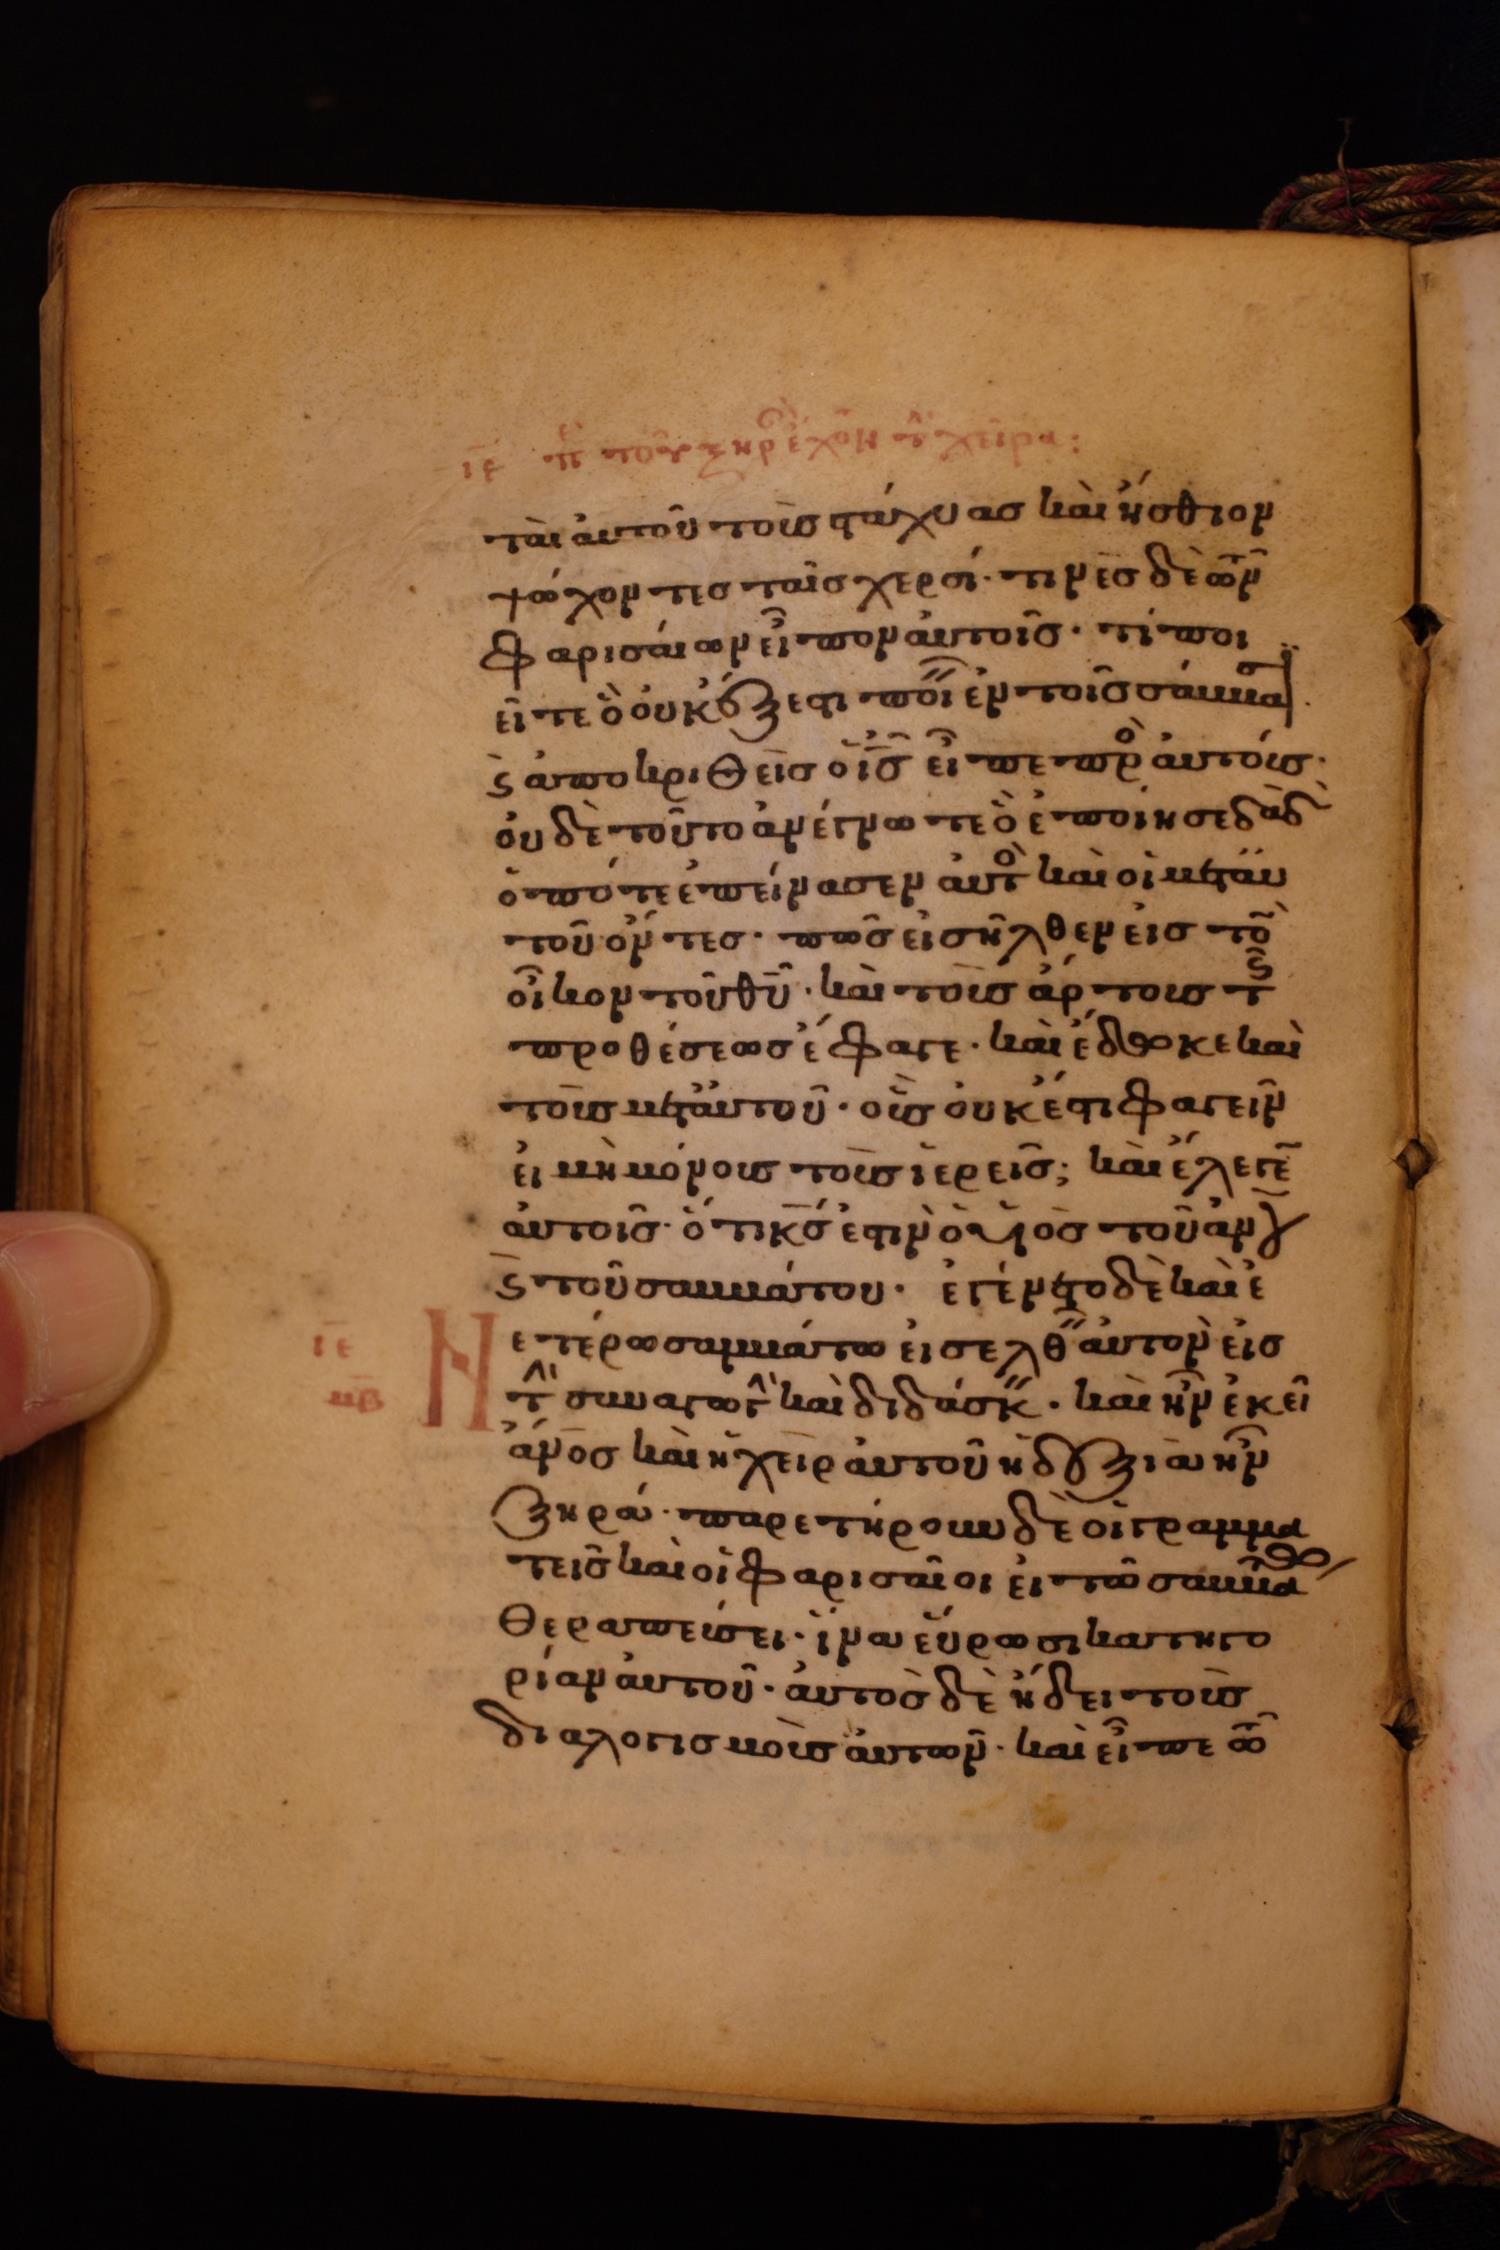 ταὶ ἀυτοῦ τοὺς στάχυας καὶ ἤσθιον
ψώχοντες ταῖς χερσί· τινὲς δὲ τῶν
φαρισάιων εἶπον ἀυτοῖς· τί ποι
εῖτε ὃ ὀυκ ἔξεστι ποιεῖν ἐν τοῖς σάββασι·
καὶ ἀποκριθεὶς ὁ ἰς εἶπε πρὸς ἀυτόυς·
ὀυδὲ τοῦτο ἀνέγνωτε ὃ ἐποίησε δαδ
ὁπότε ἐπείνασεν ἀυτὸς καὶ οἱ μετ ἀυ
τοῦ ὄντες· πῶς εἰσῆλθεν εἰς τὸν
οἶκον τοῦ θυ· καὶ τοὺς ἄρτους τῆς
προθέσεως ἔφαγε· καὶ ἔδωκε καὶ
τοῖς μετ ἀυτοῦ· οὓς ὀυκ ἔξεστι φαγεῖν
εἰ μὴ μόνους τοὺς ἱερεῖς; καὶ ἔλεγεν
ἀυτοῖς· ὅτι κς ἐστιν ὁ υἱὸς τοῦ ἀνου
καὶ τοῦ σαββάτου· ἐγένετο δὲ καὶ ἐ
ιε ετέρω σαββάτω εἰσελθεῖν ἀυτὸν εἰς
μβ τὴν συναγωγὴν καὶ διδάσκειν· καὶ ἦν ἐκεῖ
ἄνος καὶ ἡ χεὶρ ἀυτοῦ ἡ δεξιὰ ἦν
ξηρά· παρετήρουν δὲ οἱ γραμμα
τεῖς καὶ οἱ φαρισαῖοι εἰ τῶ σαββάτω
θεραπεύσει· ἵνα εὕρωσι κατηγο
ρίαν ἀυτοῦ· ἀυτὸς δὲ ἤδει τοὺς
διαλογισμοὺς ἀυτῶν· καὶ εἶπε τῶ